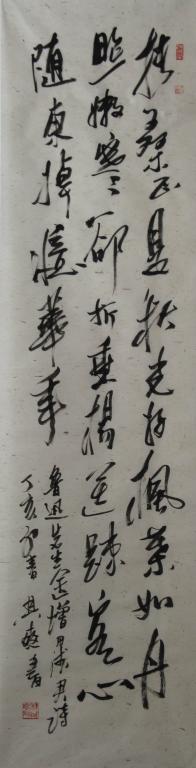 扶桑正是秋光好楓葉如丹
照嫩寒卻折垂楊送歸客心
随東棹憶華年
魯迅先生送增田涉君詩
丁亥初春書